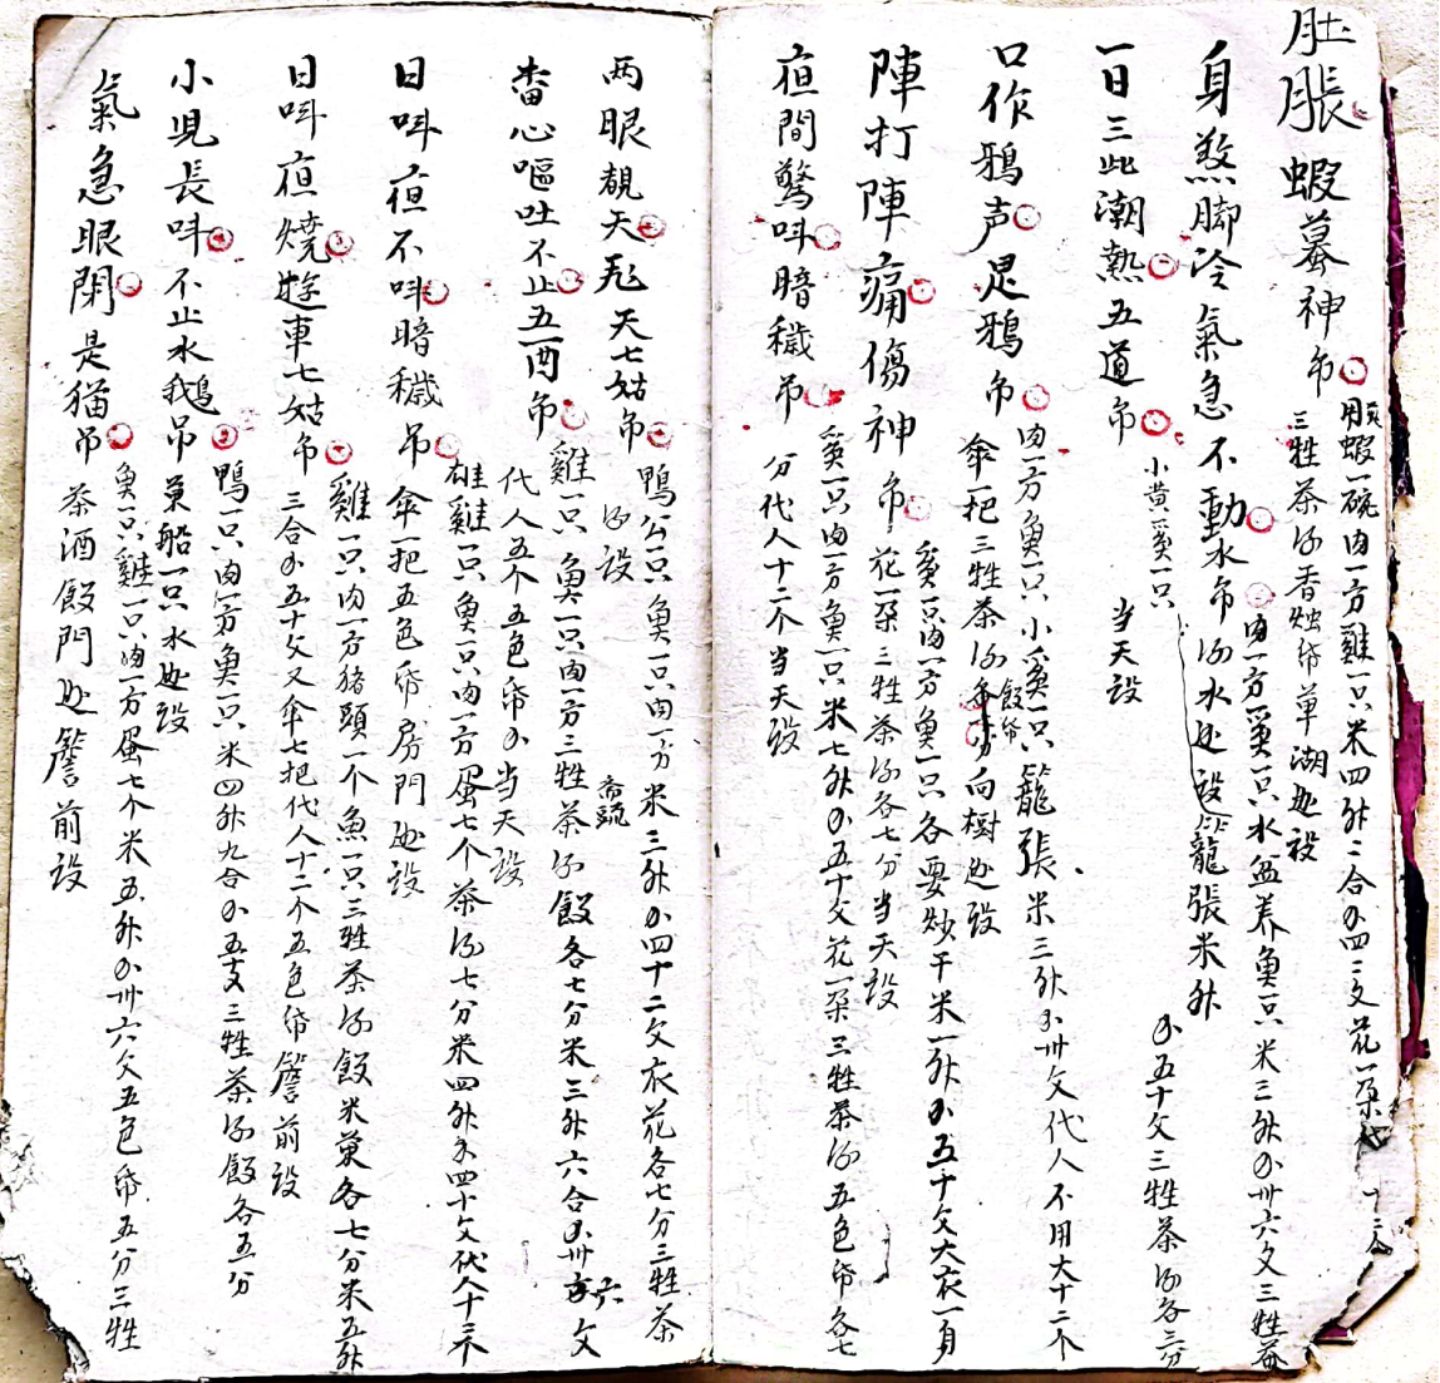 肚脹蝦蟇神吊
用蝦一碗肉一方雞一只米四升二合錢四二文花一朶代
十二个
三牲茶酒香燭帋草湖处設
身𤍠脚冷氣急不動水吊
肉一方雞一只水盆养魚一只米三升錢卅六文三牲茶
酒水处設
一日三此潮熱五道吊
小黄雞一只
籠張米升
錢五十文三牲茶酒各三分
当天設
口作鴉声是鴉吊
肉一方魚一只小雞一只籠張米三升錢卅文代人不用大十二个
傘一把三牲茶酒飯帋向樹处設
陣打陣痛傷神吊
雞一只肉一方魚一只各要炒干米一升錢五十文大衣一身
花一朶三牲茶酒各七分当天設
夜間驚呌暗穢吊
雞一只肉一方魚一只米七升錢五十文花一朶三牲茶酒五色帋各七
分代人十二个当天設
两眼覩天飛天七姑吊
鴨公一只魚一只肉一方米三升錢四十二文衣花各七分三牲茶
酒設
畨心嘔吐不止五酉吊
雞一只魚一只肉一方三牲茶酒飯各七分米三升六合錢卅六文
代人五个五色帋錢当天設
日呌夜不呌暗穢吊
雄雞一只魚一只肉一方蛋七个茶酒七分米四升錢四十文代人十二个
傘一把五色帋房門处設
日呌夜燒遊車七姑吊
雞一只肉一方猪頭一个魚一只三牲茶酒飯米菓各七分米五升
三合錢五十文又傘七把代人十二个五色帋簷前設
小児長呌不止水鵝吊
鴨一只肉一方魚一只米四升九合錢五文三牲茶酒飯各五分
菓船一只水处設
氣急眼閉是猫吊
魚一只雞一只肉一方蛋七个米五升錢卅六文五色帋五分三牲
茶酒飯門处簷前設